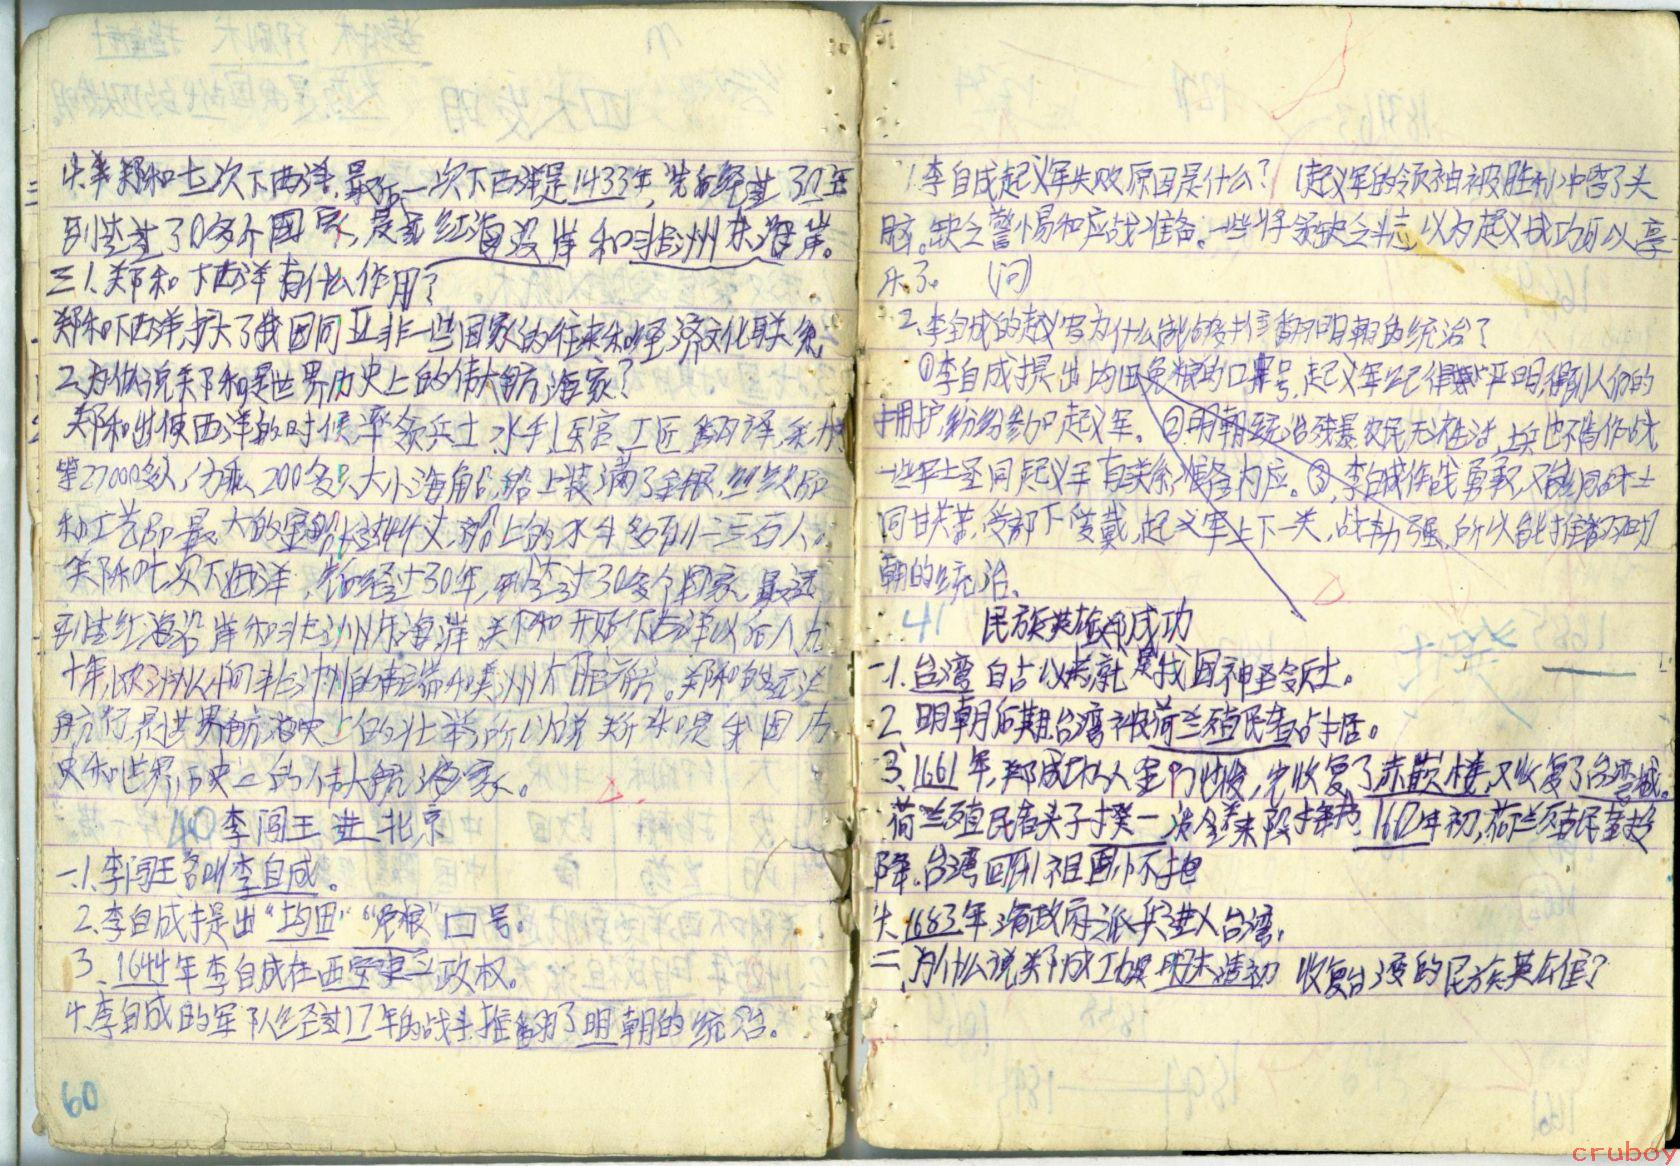 4.郑和七次下西洋,最后一次下西洋是1433年,先后经过30年
到达过30多个国家,最远红海沿岸和非洲东海岸。
三1.郑和下西洋有什么作用?
郑和下西洋扩大了我国同亚非一些国家的往来和经济文化联系。
2.为什么说郑和是世界历史上的伟大航海家?
郑和出使西洋的时候率领兵士、水手、医官、工匠、翻译,
等27000多人,分乘200多只大小海船,船上装满了金银,丝绸
和工艺品最大的宝船长44丈,船上的水手多到二三百人。
郑和七次下西洋,先后经过30年,经过30多个国家,最远
到达红海沿岸和非洲东海岸。郑和开始下西洋以后八九
十年,欧洲人才到非洲的南端和美洲大陆航行。郑和的远洋
航行,是世界航海史上的壮举,所以说郑和是我国历
史和世界历史上的伟大航海家。
40 李闯王进北京
一.1.李闯王名叫李自成。
2.李自成提出“均田”“免粮”口号。
3.1644年李自成在西安建立政权。
4.李自成的军队经过17年的战斗推翻了明朝的统治。
60
1.李自成起义军失败原因是什么?(起义军的领袖被胜利冲昏了头
脑。缺乏警惕和应战准备。一些将领缺乏斗志,以为起义成功可以享
乐了。 (问)
2.李自成的起义军为什么能够推翻明朝的统治?
①李自成提出均田免粮的口号,起义军纪律严明,得到人们的
拥护,纷纷参加起义军。②明朝统治残暴,农民无法生活,士兵也不肯作战
一些军士至同起义军有关系,准备内应。③,李自成作战勇敢,又能同战士
同甘共苦,受部下爱戴,起义军上下一关,战斗力强,所以能推翻明
朝的统治。
41 民族英雄郑成功
一1.台湾自古以来就是我国神圣领土。
2、明朝后期台湾被荷兰殖民者占据。
3、1661年,郑成功从金门出发,先收复了赤嵌楼,又收复了台湾城。
荷兰殖民者头子揆一 1662年初,荷兰殖民者投
降。台湾回到祖国怀抱
4.1683年,清政府派兵进入台湾,
二、为什么说郑成功是明末清初收复台湾的民族英雄?
cruboy